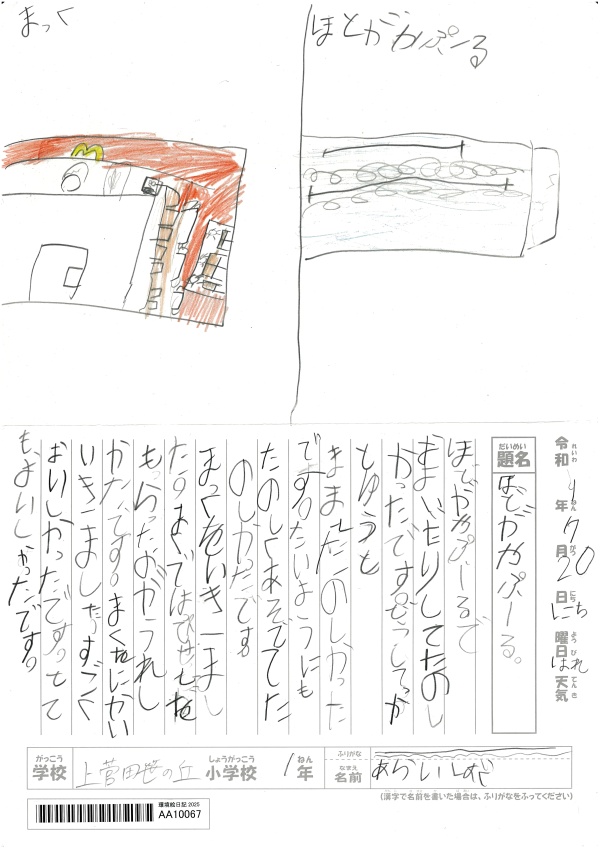 まっく
ほどがやぷーる
令和 1年7月20日 にち曜日 はれ天気
れいわ ねん がつ にち ようび てんき
だいめい
題名
ほどがやぷーる。
ほどがやぷーるで
およいだりしてたのし
かったです。どうしてっか
とゆうと
ままもたのしかった
です。たいようにも
たのしくあそべてた
のしかたです
まっくをいきーまし
た。まくではぴせっを
もらったのがうれし
かたです。まくをにかい
いきーました。すごく
おいしかったです。とて
もおいしかったです。
がっこう
学校
上菅田笹の丘
しょうがっこう
小学校
1年
ねん
ふりがな
なまえ
名前
あらい
(漢字で名前を書いた場合は、ふりがなをふってください)
環境絵日記 2025
AA10067